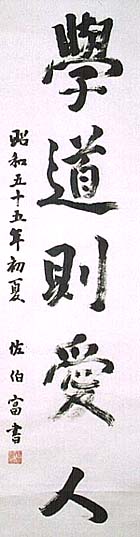 學道則愛人
昭和五十五年初夏
佐伯富書